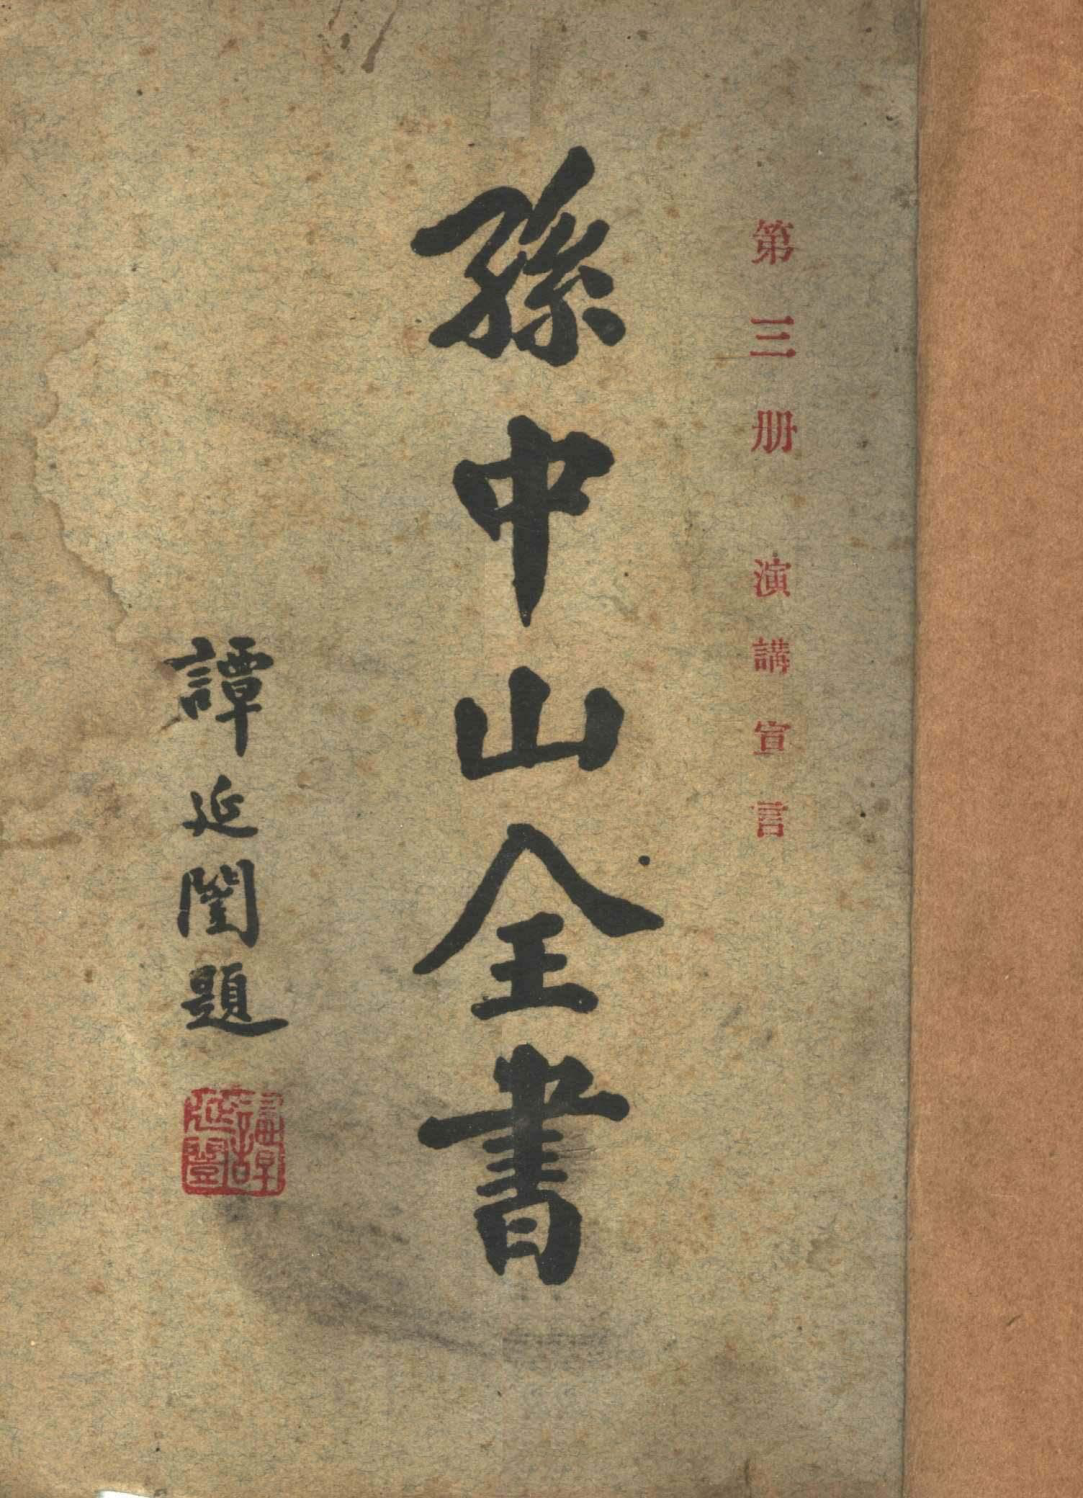 第三册 演講宣言
孫中山全書
譚延闓題
譚延闓